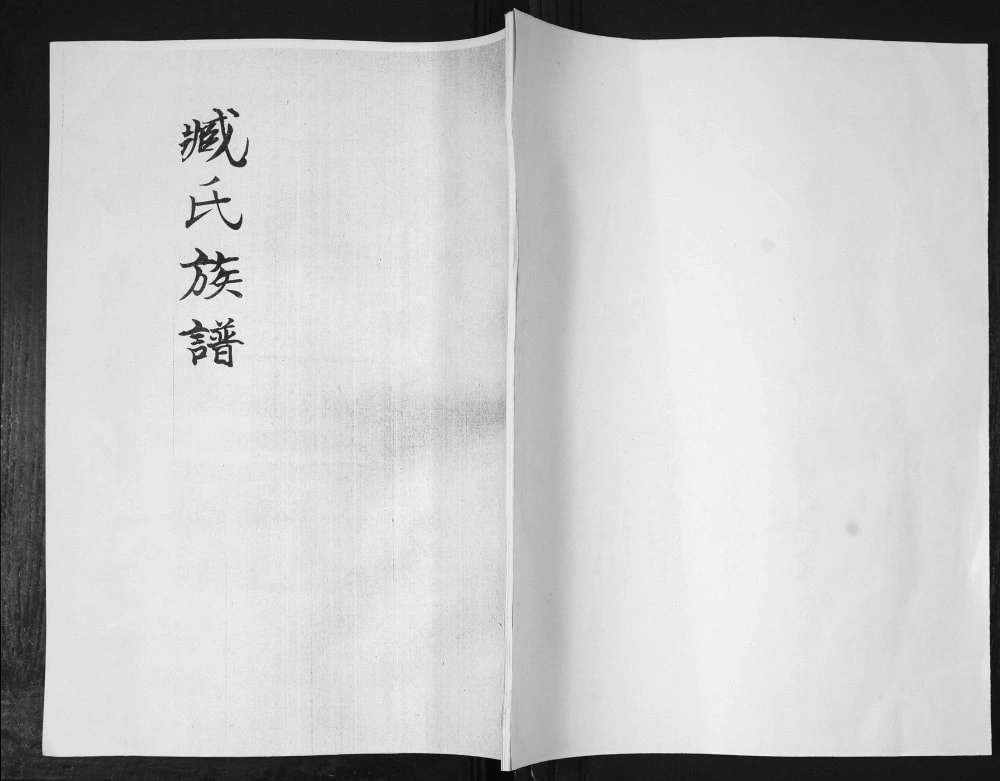 臧氏族譜